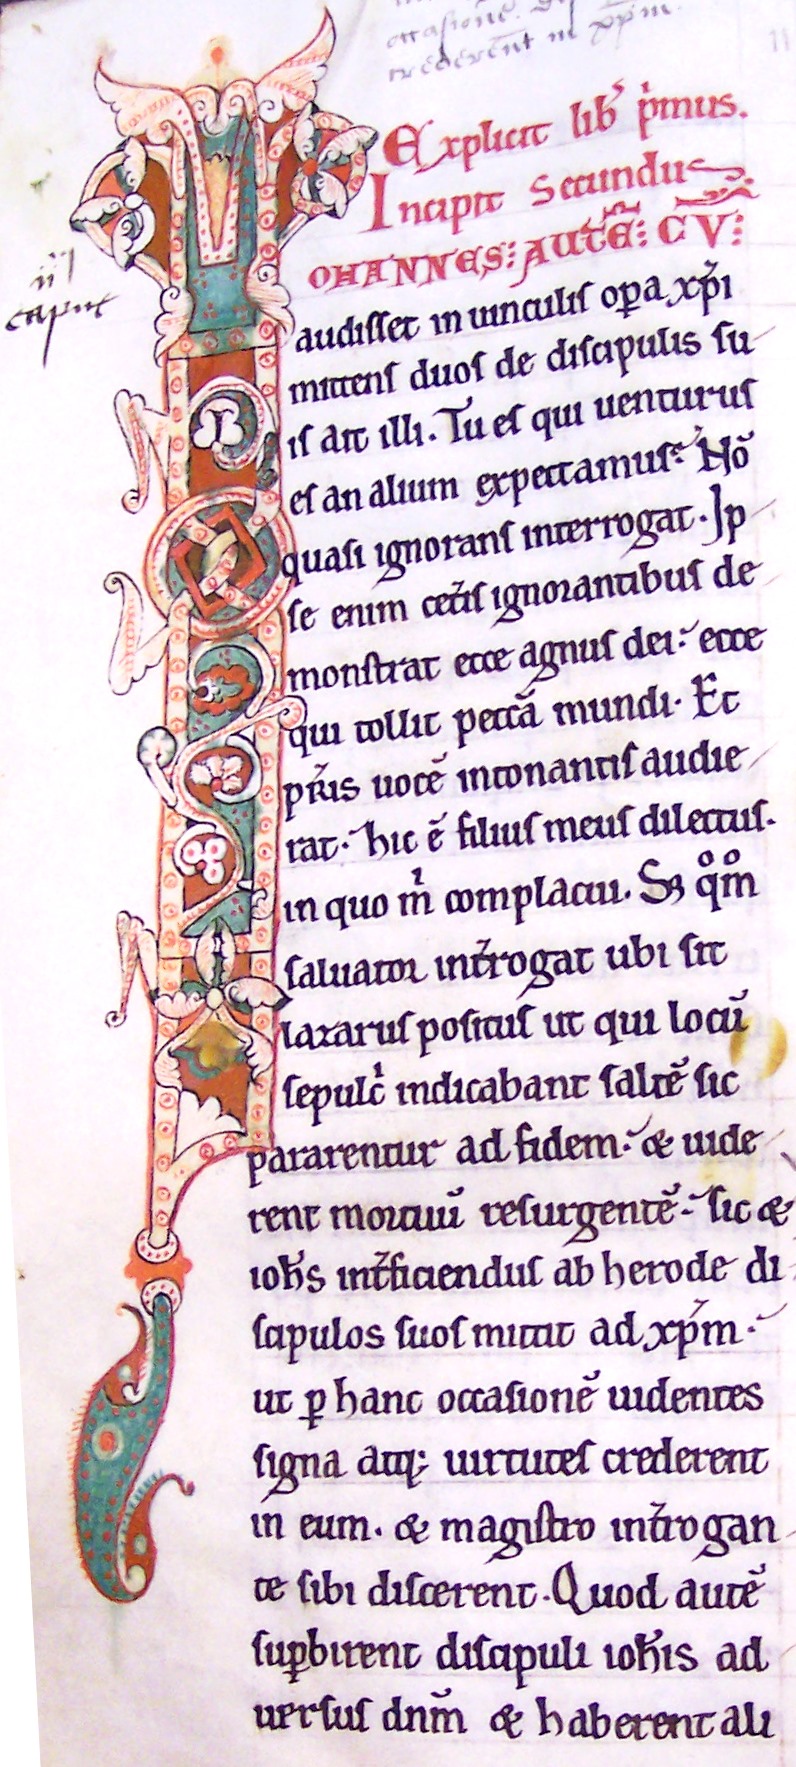 occasionē.
crederent in xp̄m.
11
Explicit lib' p'mus.
Incipit Secundus
OHANNES: AUTĒ: CV̄:
iij
caput
audisset in uinculis oꝑa xp̄i
mittens duos de discipulis su
is ait illi. Tu es qui uenturus
es an alium expectamus? Nō
quasi ignorans interrogat. Ip
se enim cet̄is ignorantibus de
monstrat ecce agnus dei: ecce
qui tollit peccā mundi. Et
pr̄is uocē intonantis audie
rat. hic ē filius meus dilectus.
in quo m̍ complacui. Sꝫ qm̊
saluator int̄rogat ubi sit
lazarus positus ut qui locū
sepulc̍ indicabant saltē sic
pararentur ad fidem. & uide
rent mortuū resurgentē. sic &
ioħs int̄ficiendus ab herode di
scipulos suos mittit ad xp̄m.
ut ꝑ hanc occasionē uidentes
signa atq; uirtutes crederent
in eum. & magistro int̄rogan
te sibi discerent. Quod autē
suꝑbirent discipuli ioħis ad
uersus dnm̄ & haberent ali